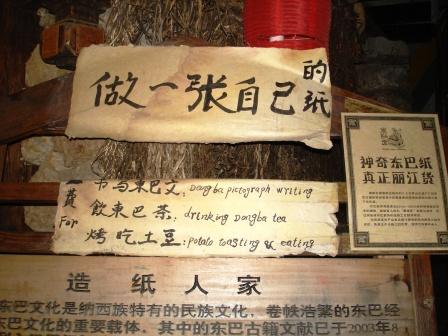 做一张自己的纸
For
书写東巴文：Dongba pictograph writing
飲東巴茶：drinking Dongba tea
烤吃土豆：potato toasting & eating
神奇东巴纸
真正丽江货
造纸人家
东巴文化是纳西族特有的民族文化，卷帙浩繁的东巴经
东巴文化的重要载体。其中的东巴古籍文献已于2003年8